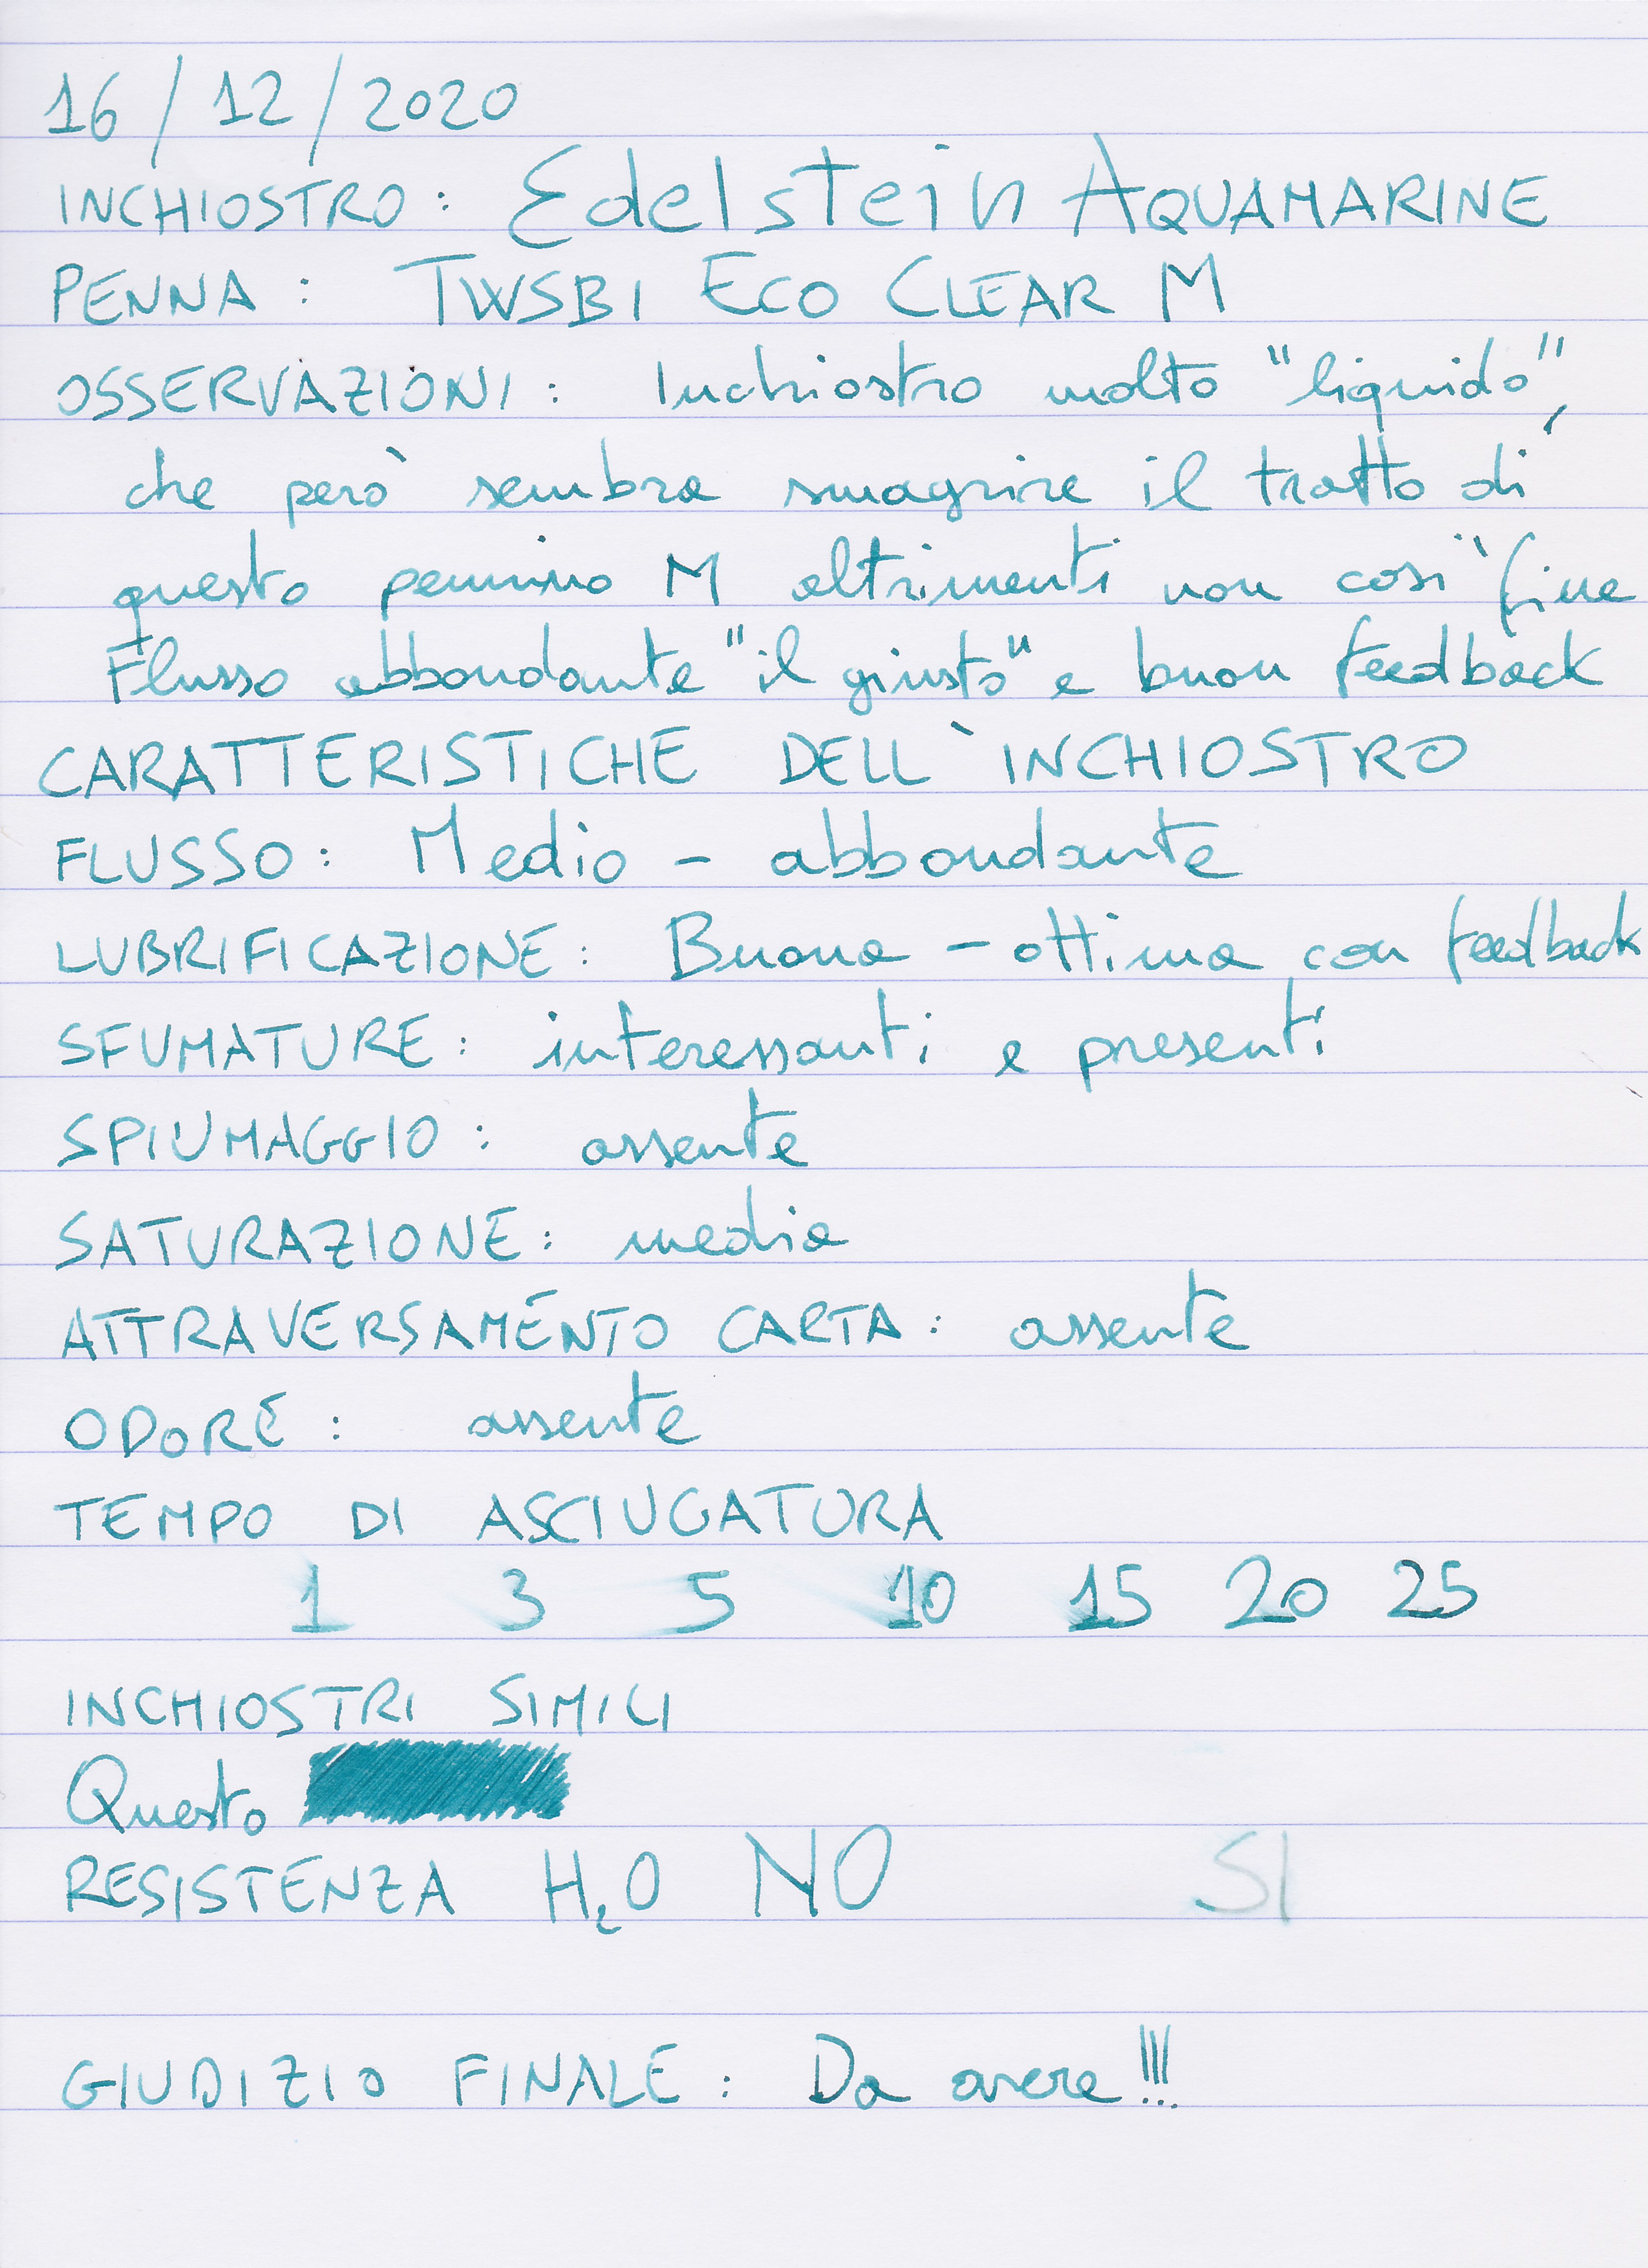 16/12/2020
INCHIOSTRO: Edelstein AQUAMARINE
PENNA: TWSBI ECO CLEAR M
OSSERVAZIONI: Inchiostro molto "liquido",
che però sembra smagrire il tratto di
questo pennino M altrimenti non così fine
Flusso abbondante "il giusto" e buon feedback
CARATTERISTICHE DELL'INCHIOSTRO
FLUSSO: Medio - abbondante
LUBRIFICAZIONE: Buona - ottima con feedback
SFUMATURE: interessanti e presenti
SPIUMAGGIO: assente
SATURAZIONE: media
ATTRAVERSAMENTO CARTA: assente
ODORE: assente
TEMPO DI ASCIUGATURA
1 3 5 10 15 20 25
INCHIOSTRI SIMILI
Questo
RESISTENZA H₂O NO SI
GIUDIZIO FINALE: Da avere!!!